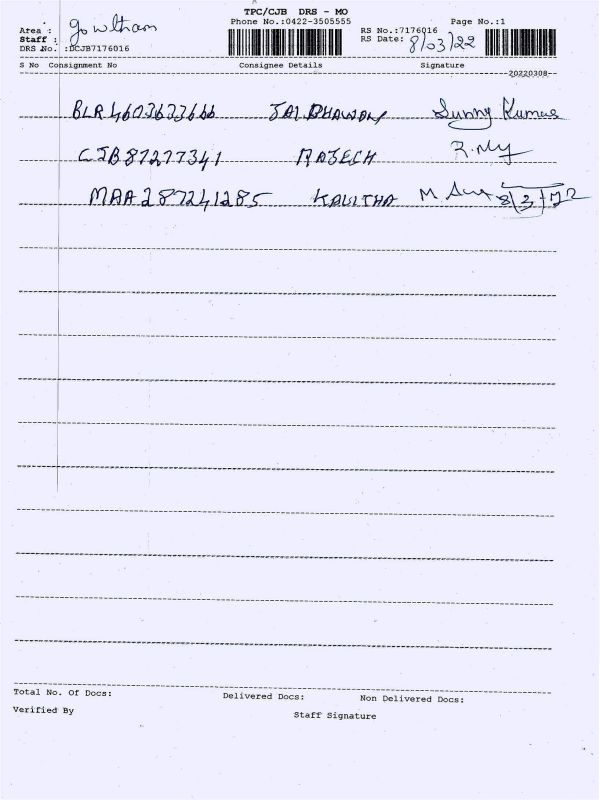 TPC/CJB DRS - MO
Phone No.:0422-3505555
Page No.:1
Area : gowtham
Staff :
DRS No. :DCJB7176016
RS No.:7176016
RS Date: 8/03/22
S No Consignment No Consignee Details Signature
20220308
BLR4603633666 JAI BHAWAN Sunny Kumar
CJB87277341 RAJECH
MAA287241285 KAVITHA M 8/3/22
Total No. Of Docs: Delivered Docs: Non Delivered Docs:
Verified By Staff Signature